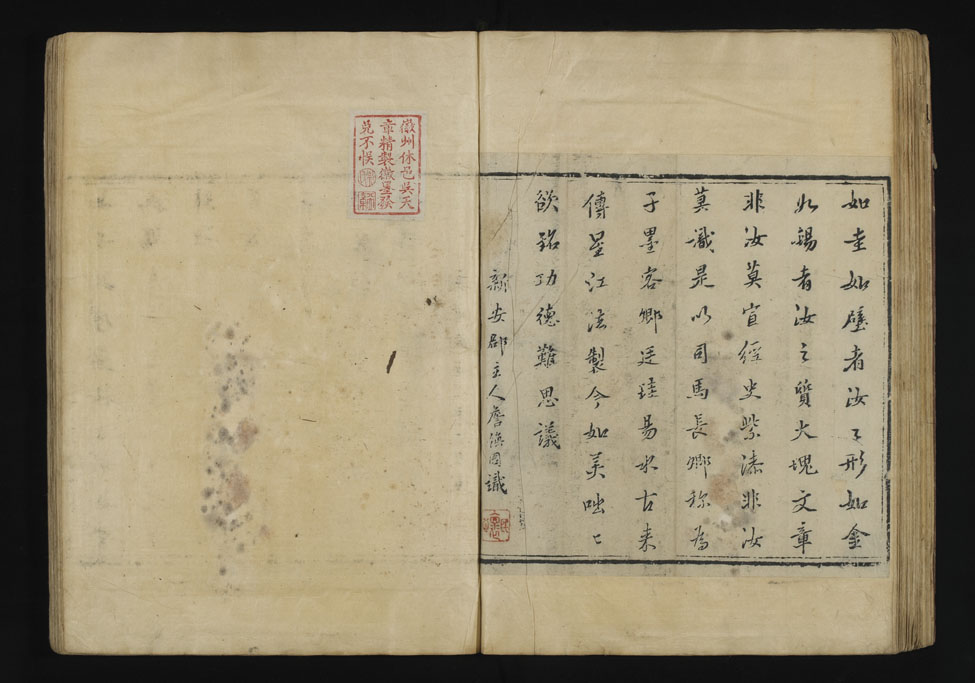 如圭如璧者汝之形如金
如錫者汝之質大塊文章
非汝莫宣經史紫漆非汝
莫識是以司馬長卿称為
子墨客卿廷珪易水古来
傳星江法製今如美咄〻
欲銘功德難思議
新安郡主人詹海國識
徽州休邑吳天
章精製徽墨發
兌不悞